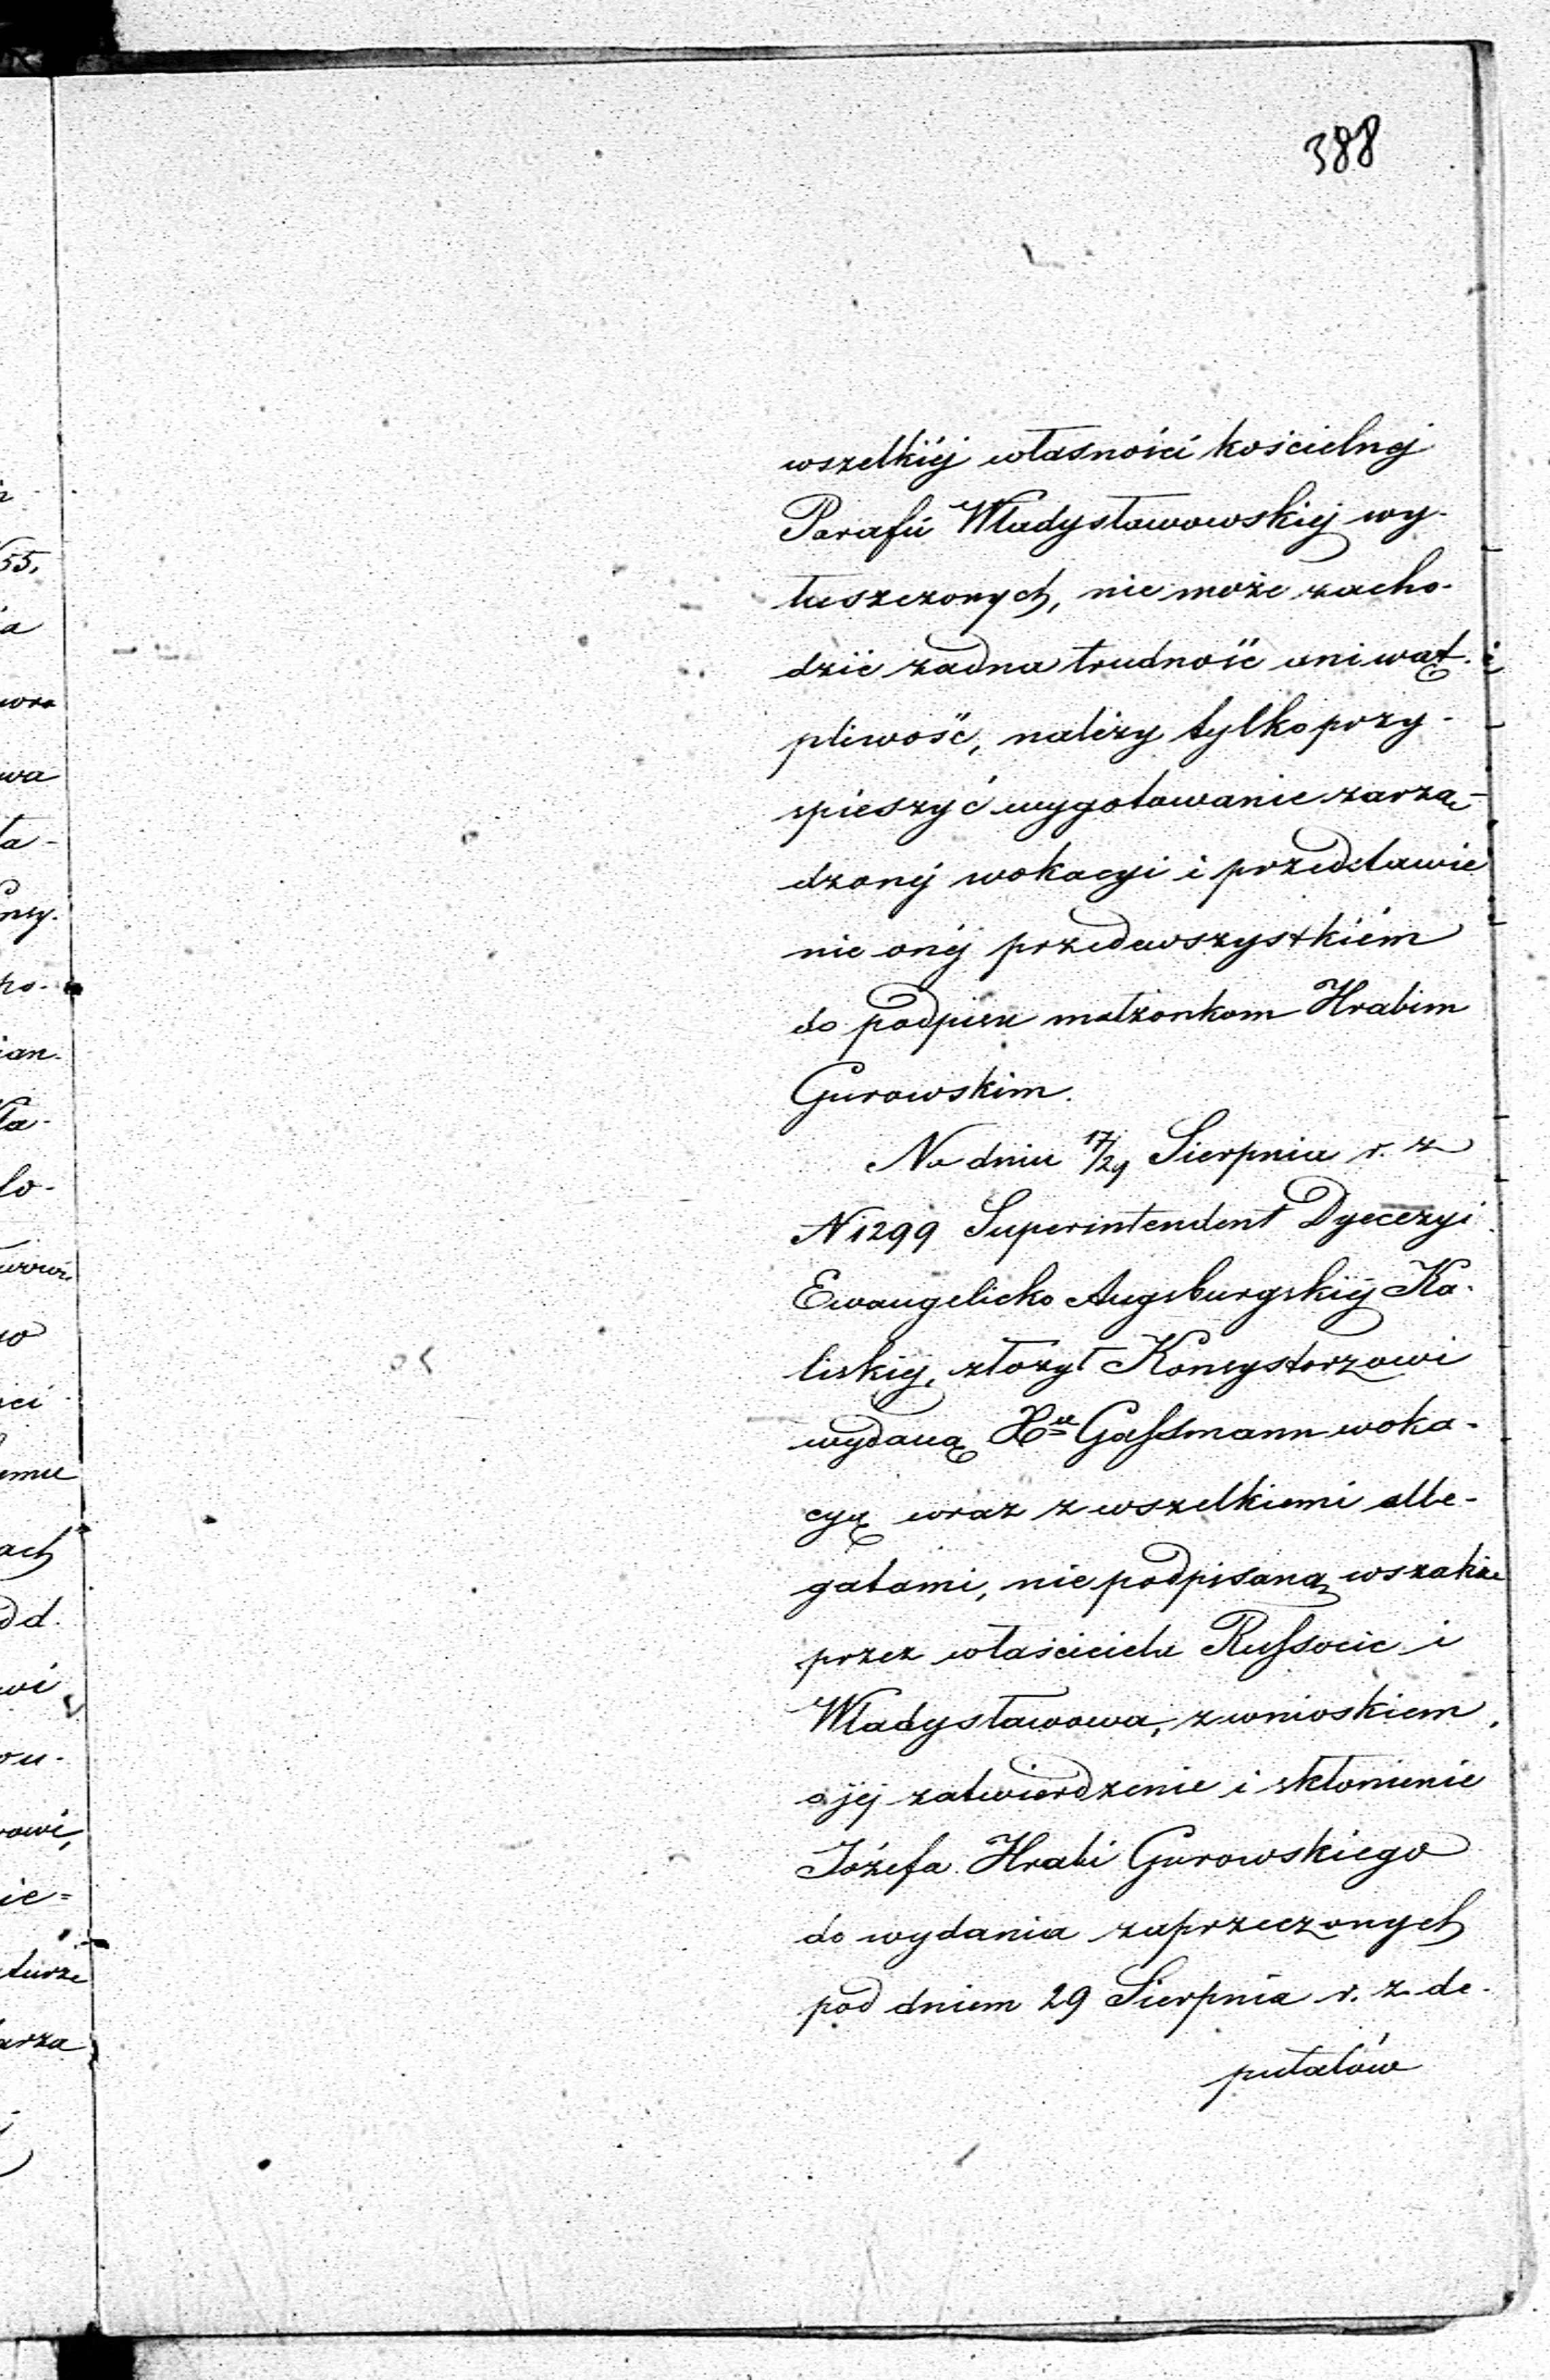 388
wszelkiéj własności kościelnej
Parafii Władysławowskiej wy-
łuszczonych, nie może zacho-
dzić żadna trudność ani wąt-
pliwość, należy tylko przy-
spieszyć wygotowanie zarzą-
dzonéj wokacyi i przedstawie
nie onéj przedewszystkiém
do podpisu małżonkom Hrabim
Gurowskim.
Na dniu 17/29 Sierpnia r. z
N 1299 Superintendent Dyecezyi
Ewangelicko Augsburgskiéj Ka-
liskiej, złożył Konsystorzowi
wydaną Xu Gassmann woka-
cyą wraz z wszelkiemi alle-
gatami, nie podpisaną wszakże
przez właściciela Russocic i
Władysławowa, z wnioskiem
o jéj zatwierdzenie i skłonienie
Józefa Hrabi Gurowskiego
do wydania zaprzeczonych
pod dniem 29 Sierpnia r. z. de-
putatów
55,
a
wa
ła-
ho-
ian-
ła-
lo-
ści
emu
ach
od d.
wi
ou-
rowi,
ie=
turze
arza